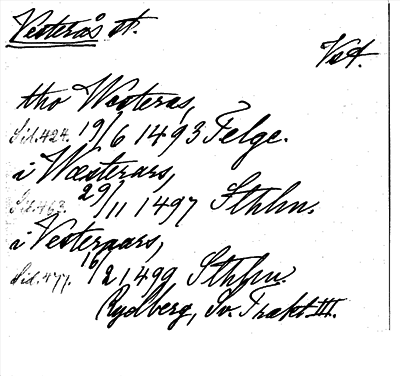 Vesterås st.
Vstl.
tho Westeras,
Sid. 424. 19/6 1493 Telge.
i Wæsterars,
Sid. 463. 29/11 1497 Sthlm.
i Vesteraars,
Sid. 477. 16/2 1499 Sthlm.
Rydberg, Sv. Trakt. III.